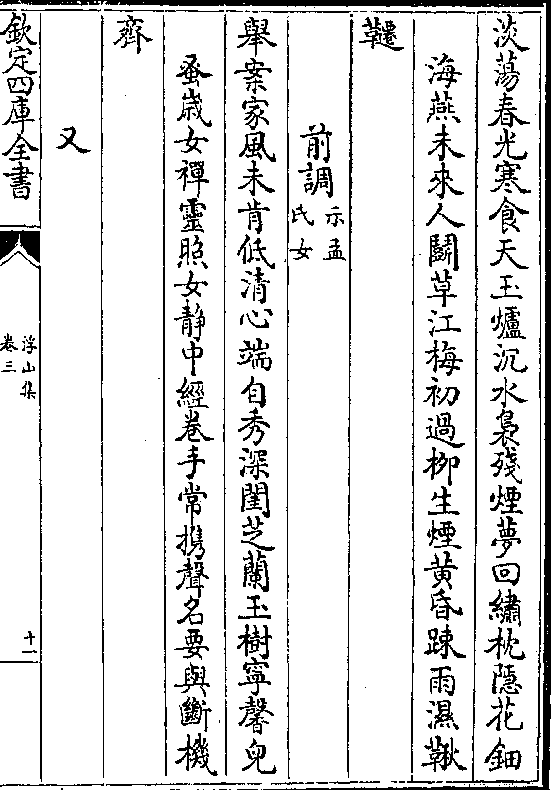 淡蕩春光寒食天玉爐沉水裊殘煙夢回繡枕隱花鈿
海燕未來人鬭草江梅初過栁生煙黄昏踈雨濕鞦
韆
前調示孟氏女
舉案家風未肯低清心端自秀深閨芝蘭玉樹寧馨兒
蚤歳女禪靈照女静中經卷手常携聲名要與斷機
齊
又
欽定四庫全書
浮山集
卷三
十一